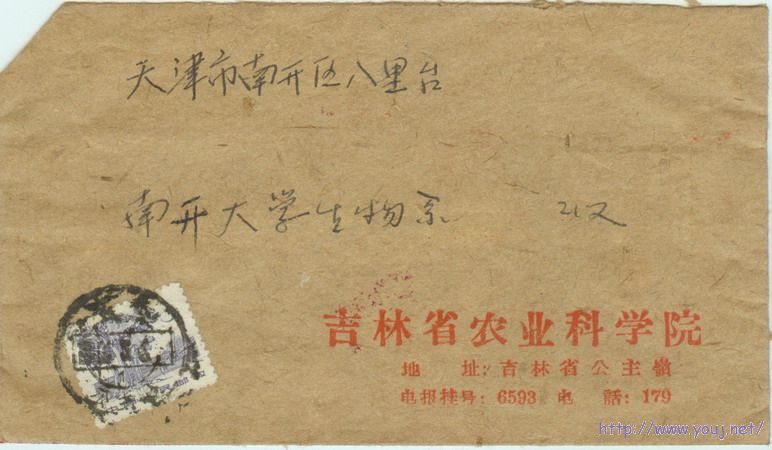 天津市南开区八里台
南开大学生物系 收
吉林省农业科学院
地 址:吉林省公主嶺
电报挂号:6593 电 話:179
http://www.youj.net/